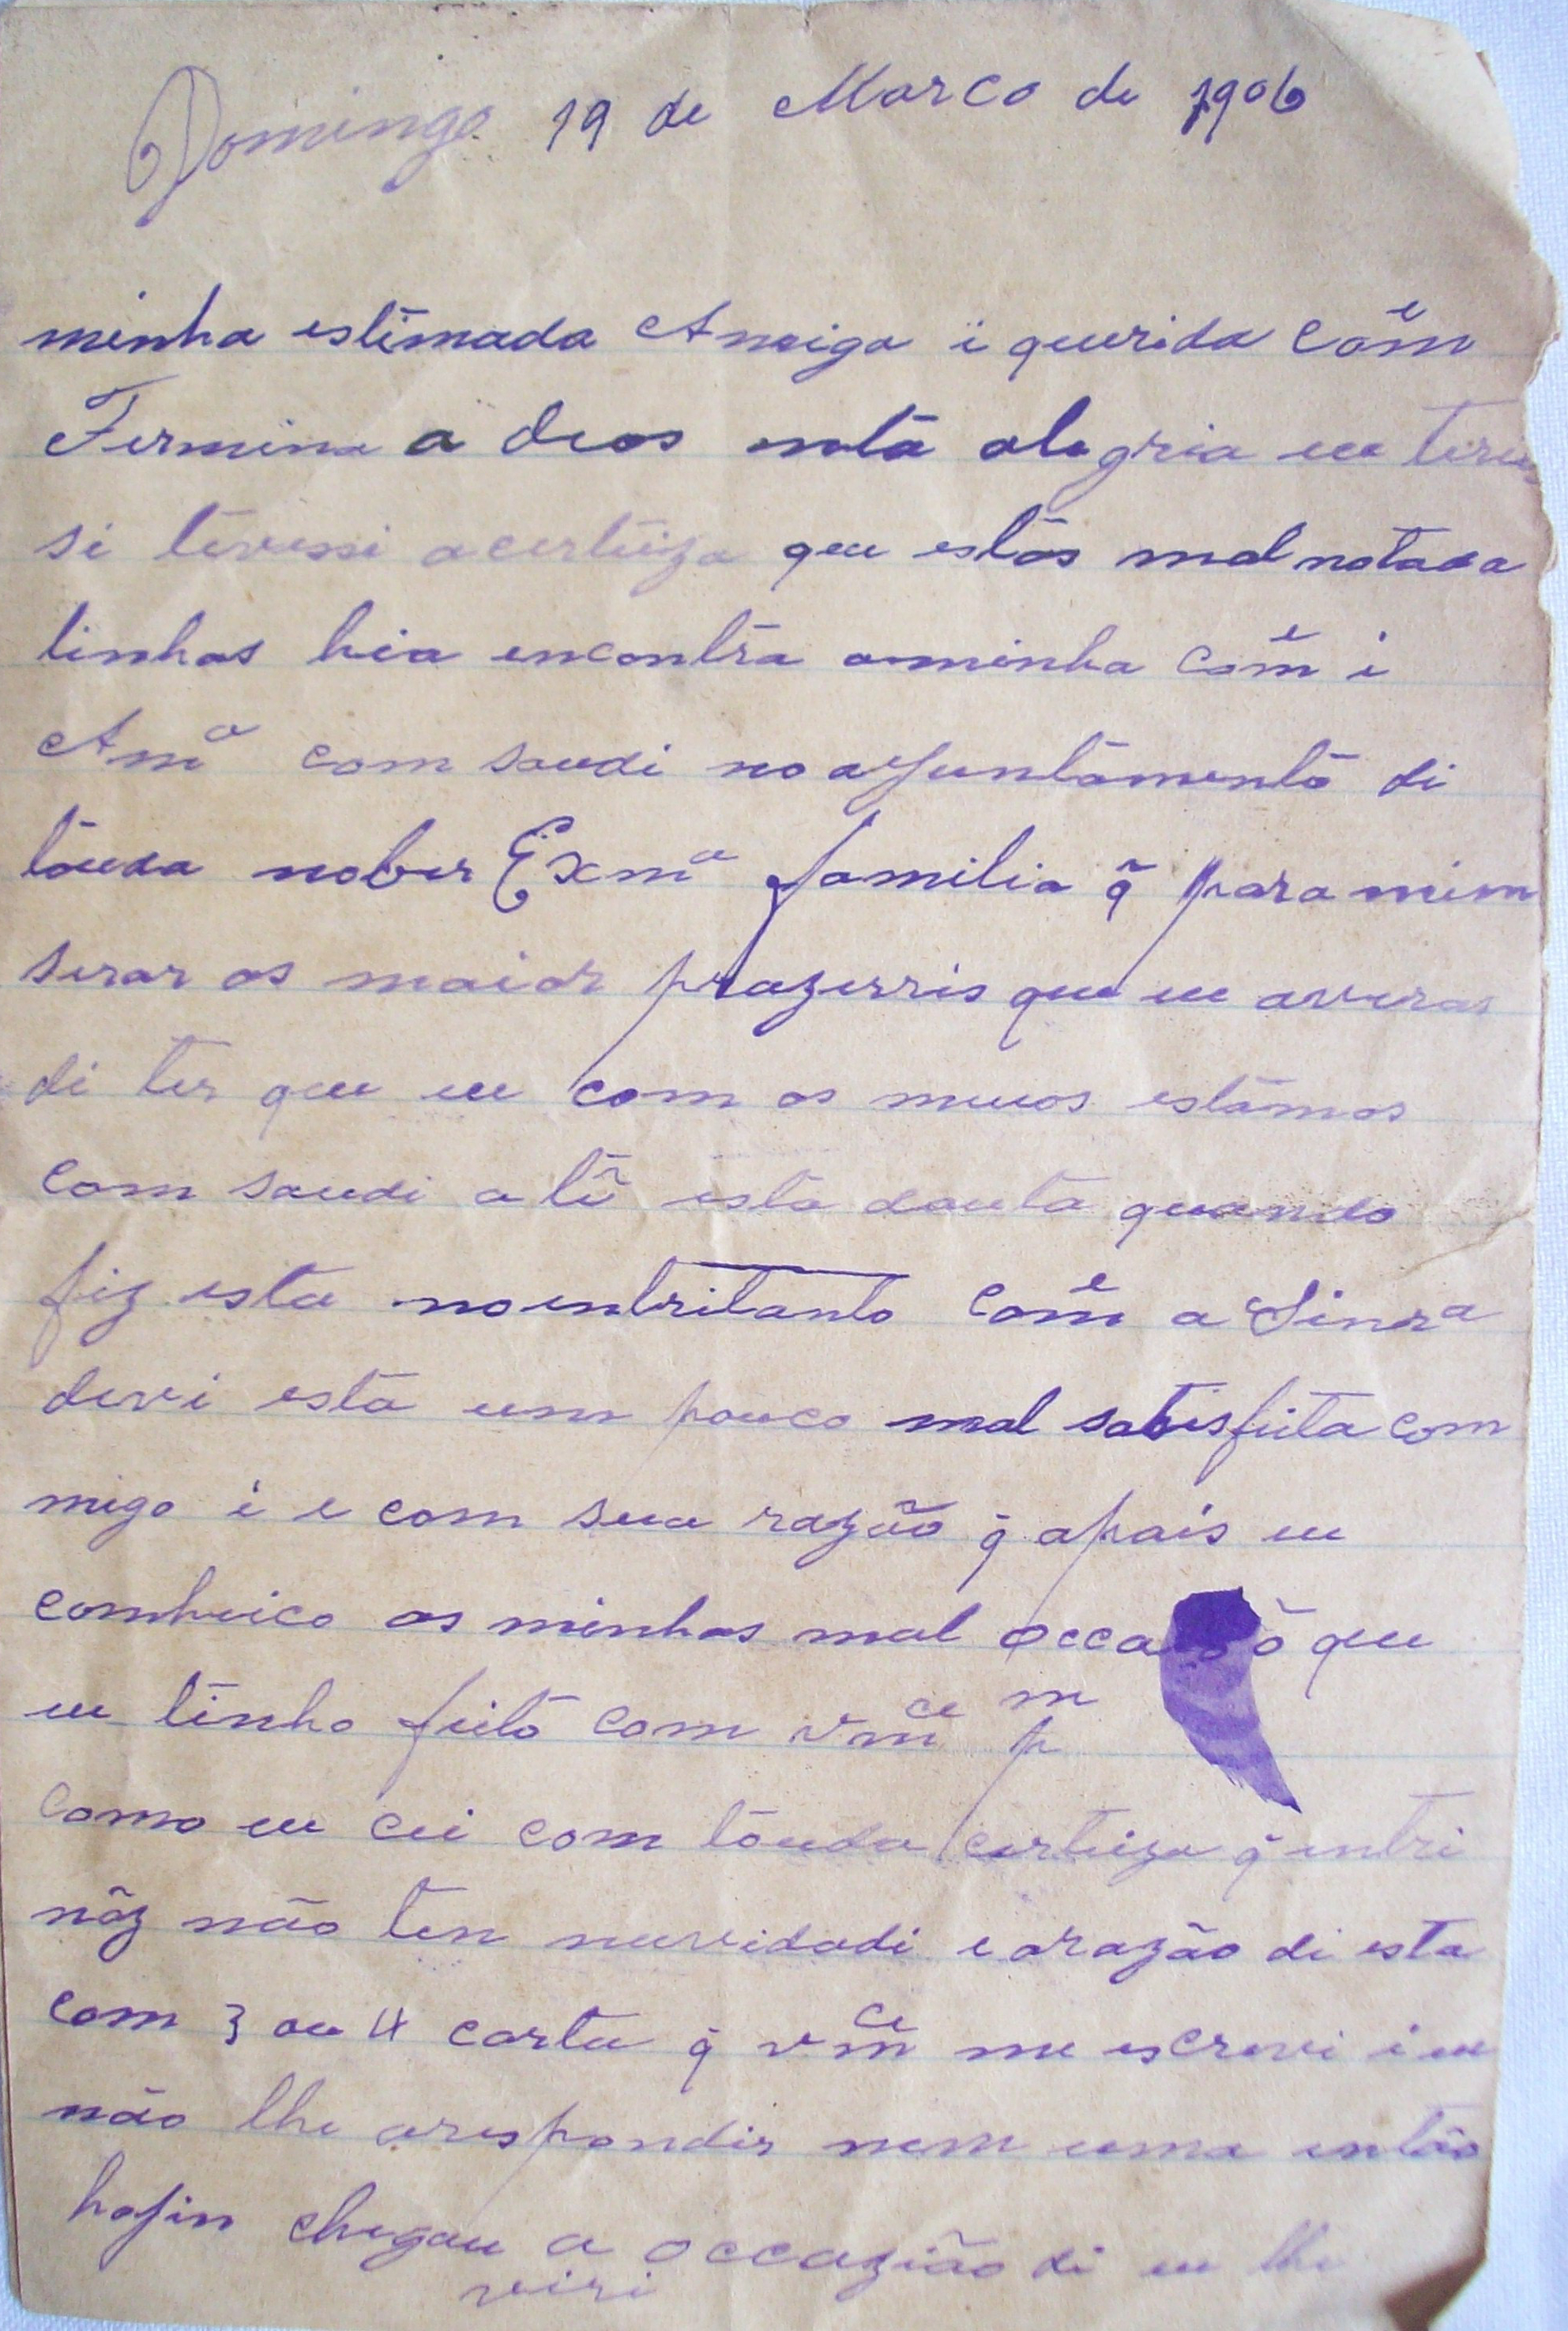 Domingo 19 de Marco de 1906
minha estimada Amiga i querida Comẽ
Fermina a deos mta alegria eu teria
si tevessi acerteiza que estas mal notada
linhas hia encontra aminha Comẽ i
Amᵃ com saudi no ajuntamento di
touda nober Exmᵃ familia q̃ para mim
serar os maior prazerris que eu averas
di ter que eu com os meuos estamos
com saudi atẽ esta dauta quando
fiz esta noentritanto Comẽ a Sinrᵃ
devi esta um pouco mal satisfeita com
migo i e com sua razão q̃ apais eu
comheico as minhas mal que
eu tenho feito com vmᶜᵉ
como eu cei com touda certeiza q̃ entri
nõz não ten nuvidadi e arazão di esta
com 3 ou 4 carta q̃ vmᶜᵉ me escrevi i eu
não lhe arespondir nem uma então
hojin chegou a occazião di eu lhe